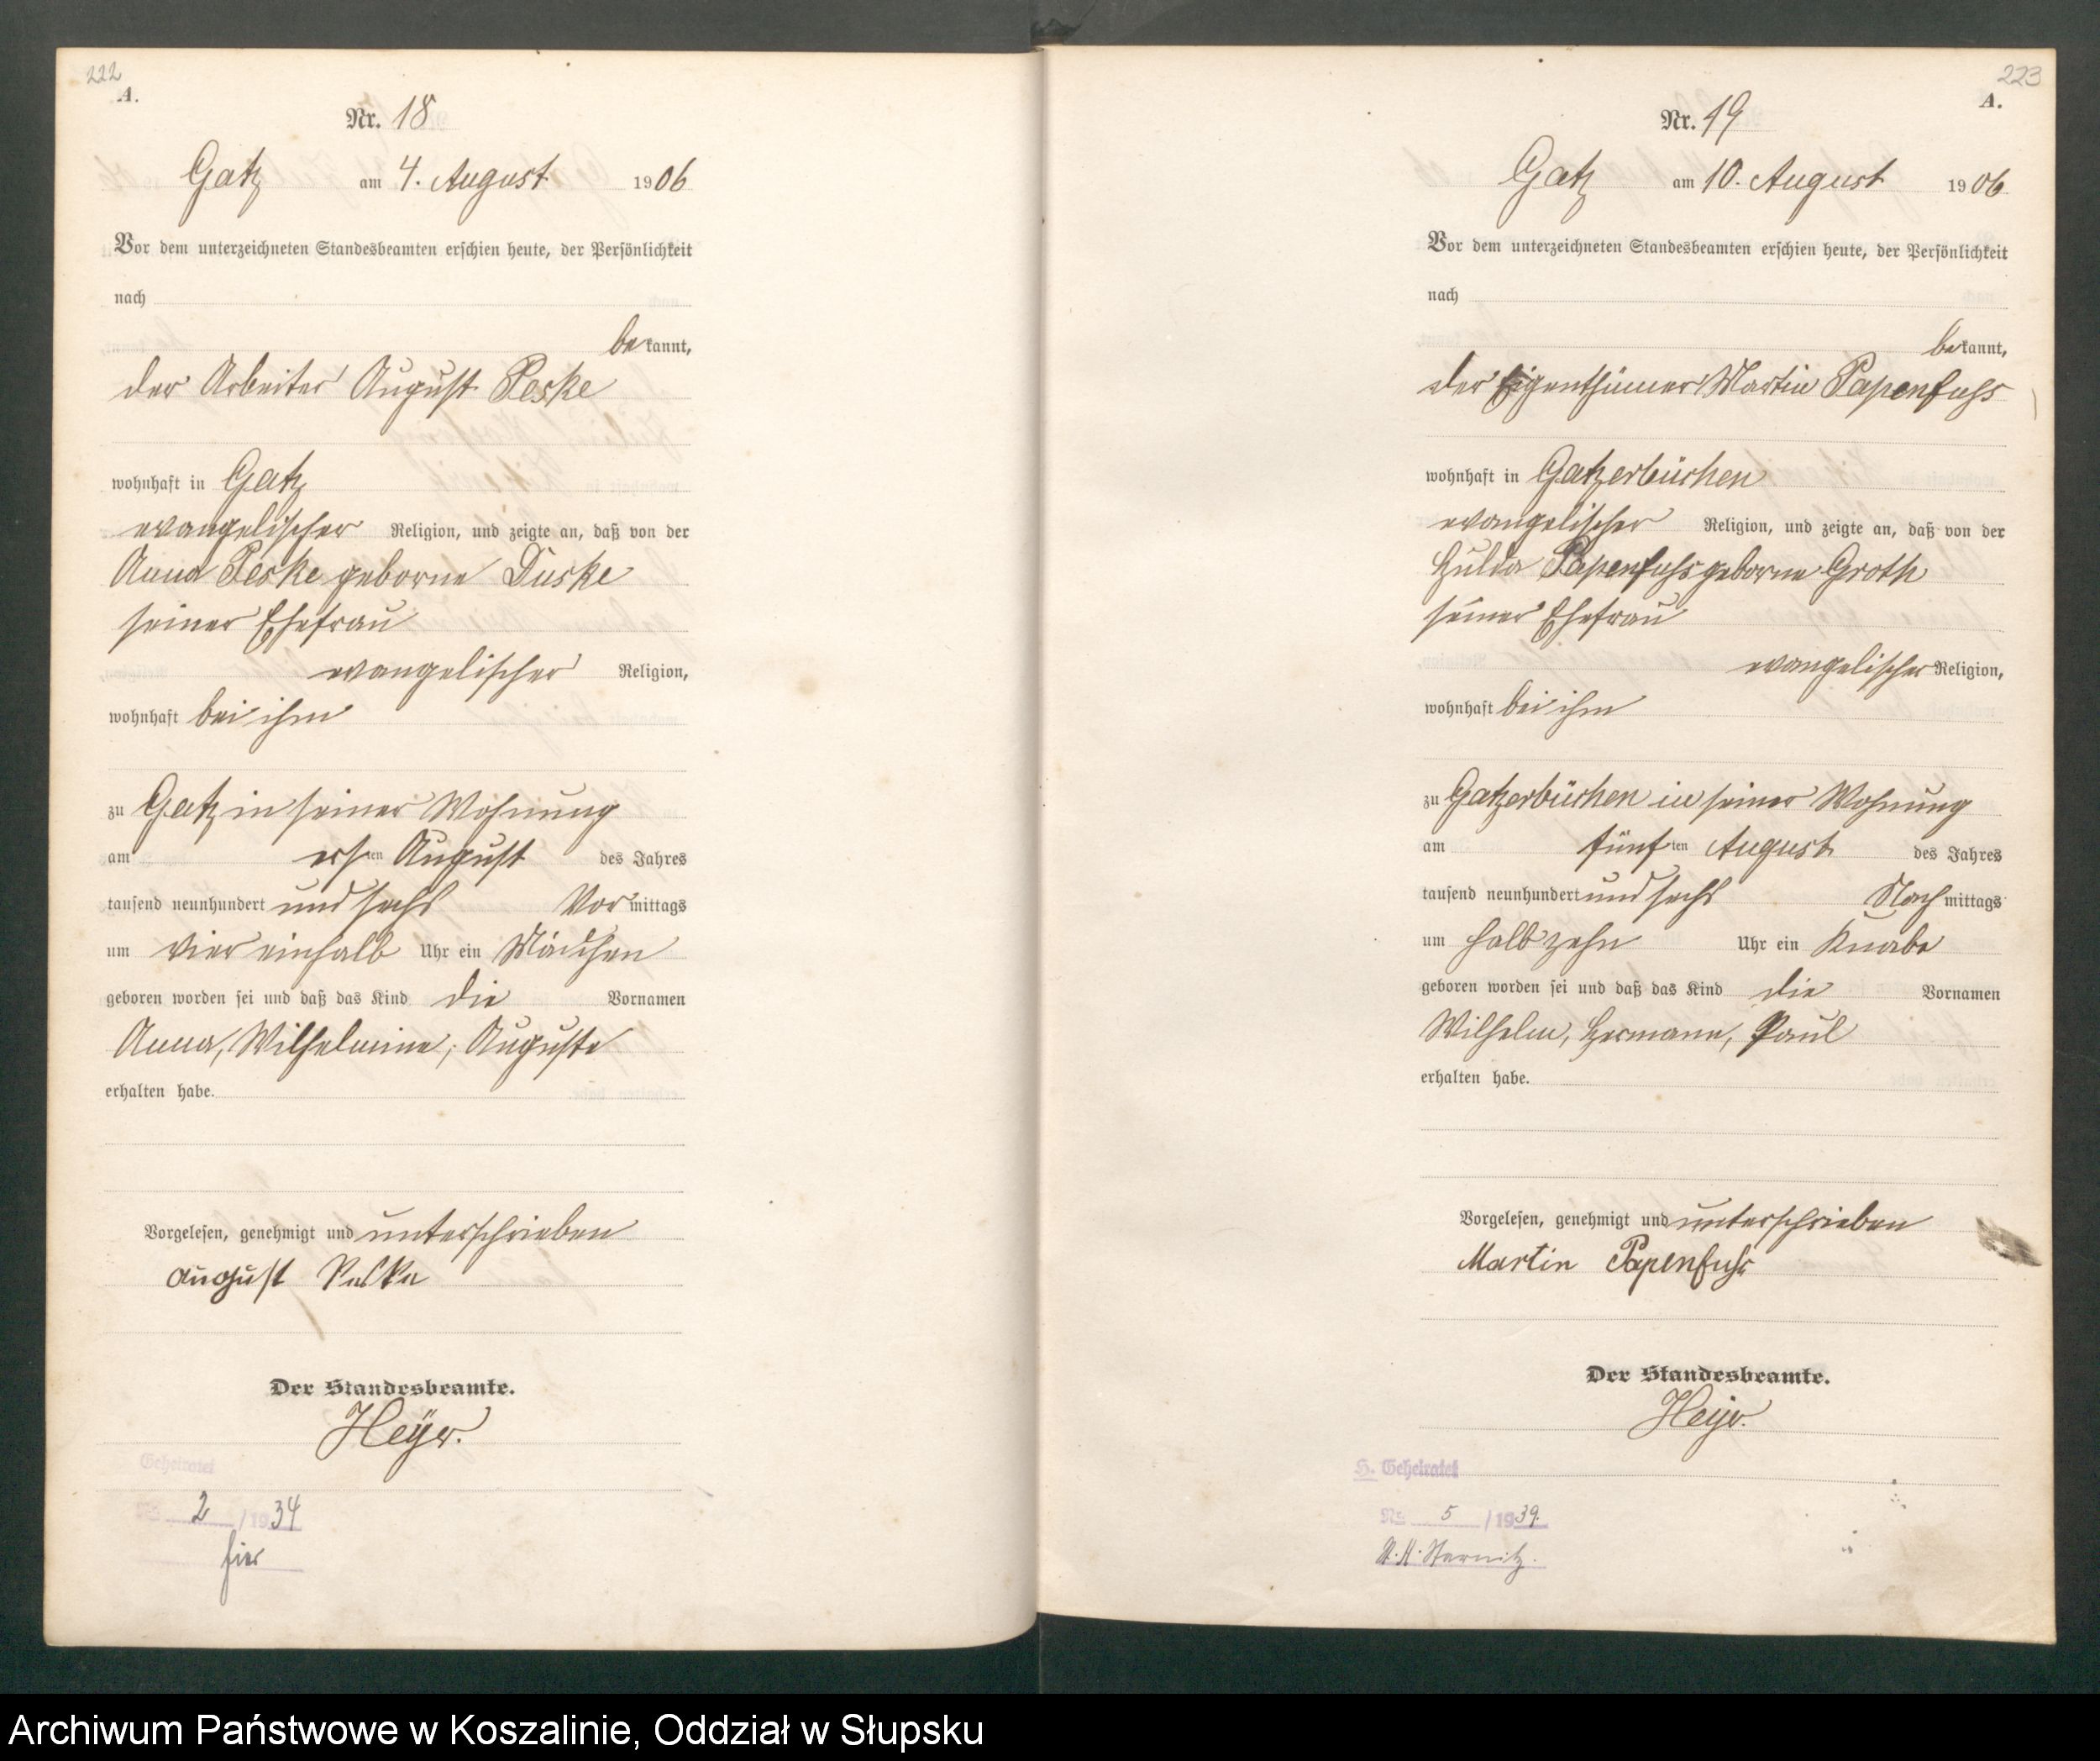 222
A.
Nr. 18
Gatz am 4. August 1906
Vor dem unterzeichneten Standesbeamten erschien heute, der Persönlichkeit
nach
bekannt,
der Arbeiter August Peske
wohnhaft in Gatz
evangelischer Religion, und zeigte an, daß von der
Anna Peske geborne Duske
seiner Ehefrau
evangelischer Religion,
wohnhaft bei ihm
zu Gatz in seiner Wohnung
am ersten August des Jahres
tausend neunhundert und sechs Vormittags
um vier einhalb Uhr ein Mädchen
geboren worden sei und daß das Kind die Vornamen
Anna, Wilhelmine, Auguste
erhalten habe.
Vorgelesen, genehmigt und unterschrieben
August Peske
Der Standesbeamte.
Heyer.
Geheiratet
No 2 / 1934
hier
223
A.
Nr. 19
Gatz am 10. August 1906
Vor dem unterzeichneten Standesbeamten erschien heute, der Persönlichkeit
nach
bekannt,
der Eigenthümer Martin Papenfuhs
wohnhaft in Gatzerbüchen
evangelischer Religion, und zeigte an, daß von der
Hulda Papenfuhs geborne Groth
seiner Ehefrau
evangelischer Religion,
wohnhaft bei ihm
zu Gatzerbüchen in seiner Wohnung
am fünften August des Jahres
tausend neunhundert und sechs Nachmittags
um halb zehn Uhr ein Knabe
geboren worden sei und daß das Kind die Vornamen
Wilhelm, Hermann, Paul
erhalten habe.
Vorgelesen, genehmigt und unterschrieben
Martin Papenfuhs
Der Standesbeamte.
Heyer.
H. Geheiratet
No 5 / 1939.
Archiwum Państwowe w Koszalinie, Oddział w Słupsku